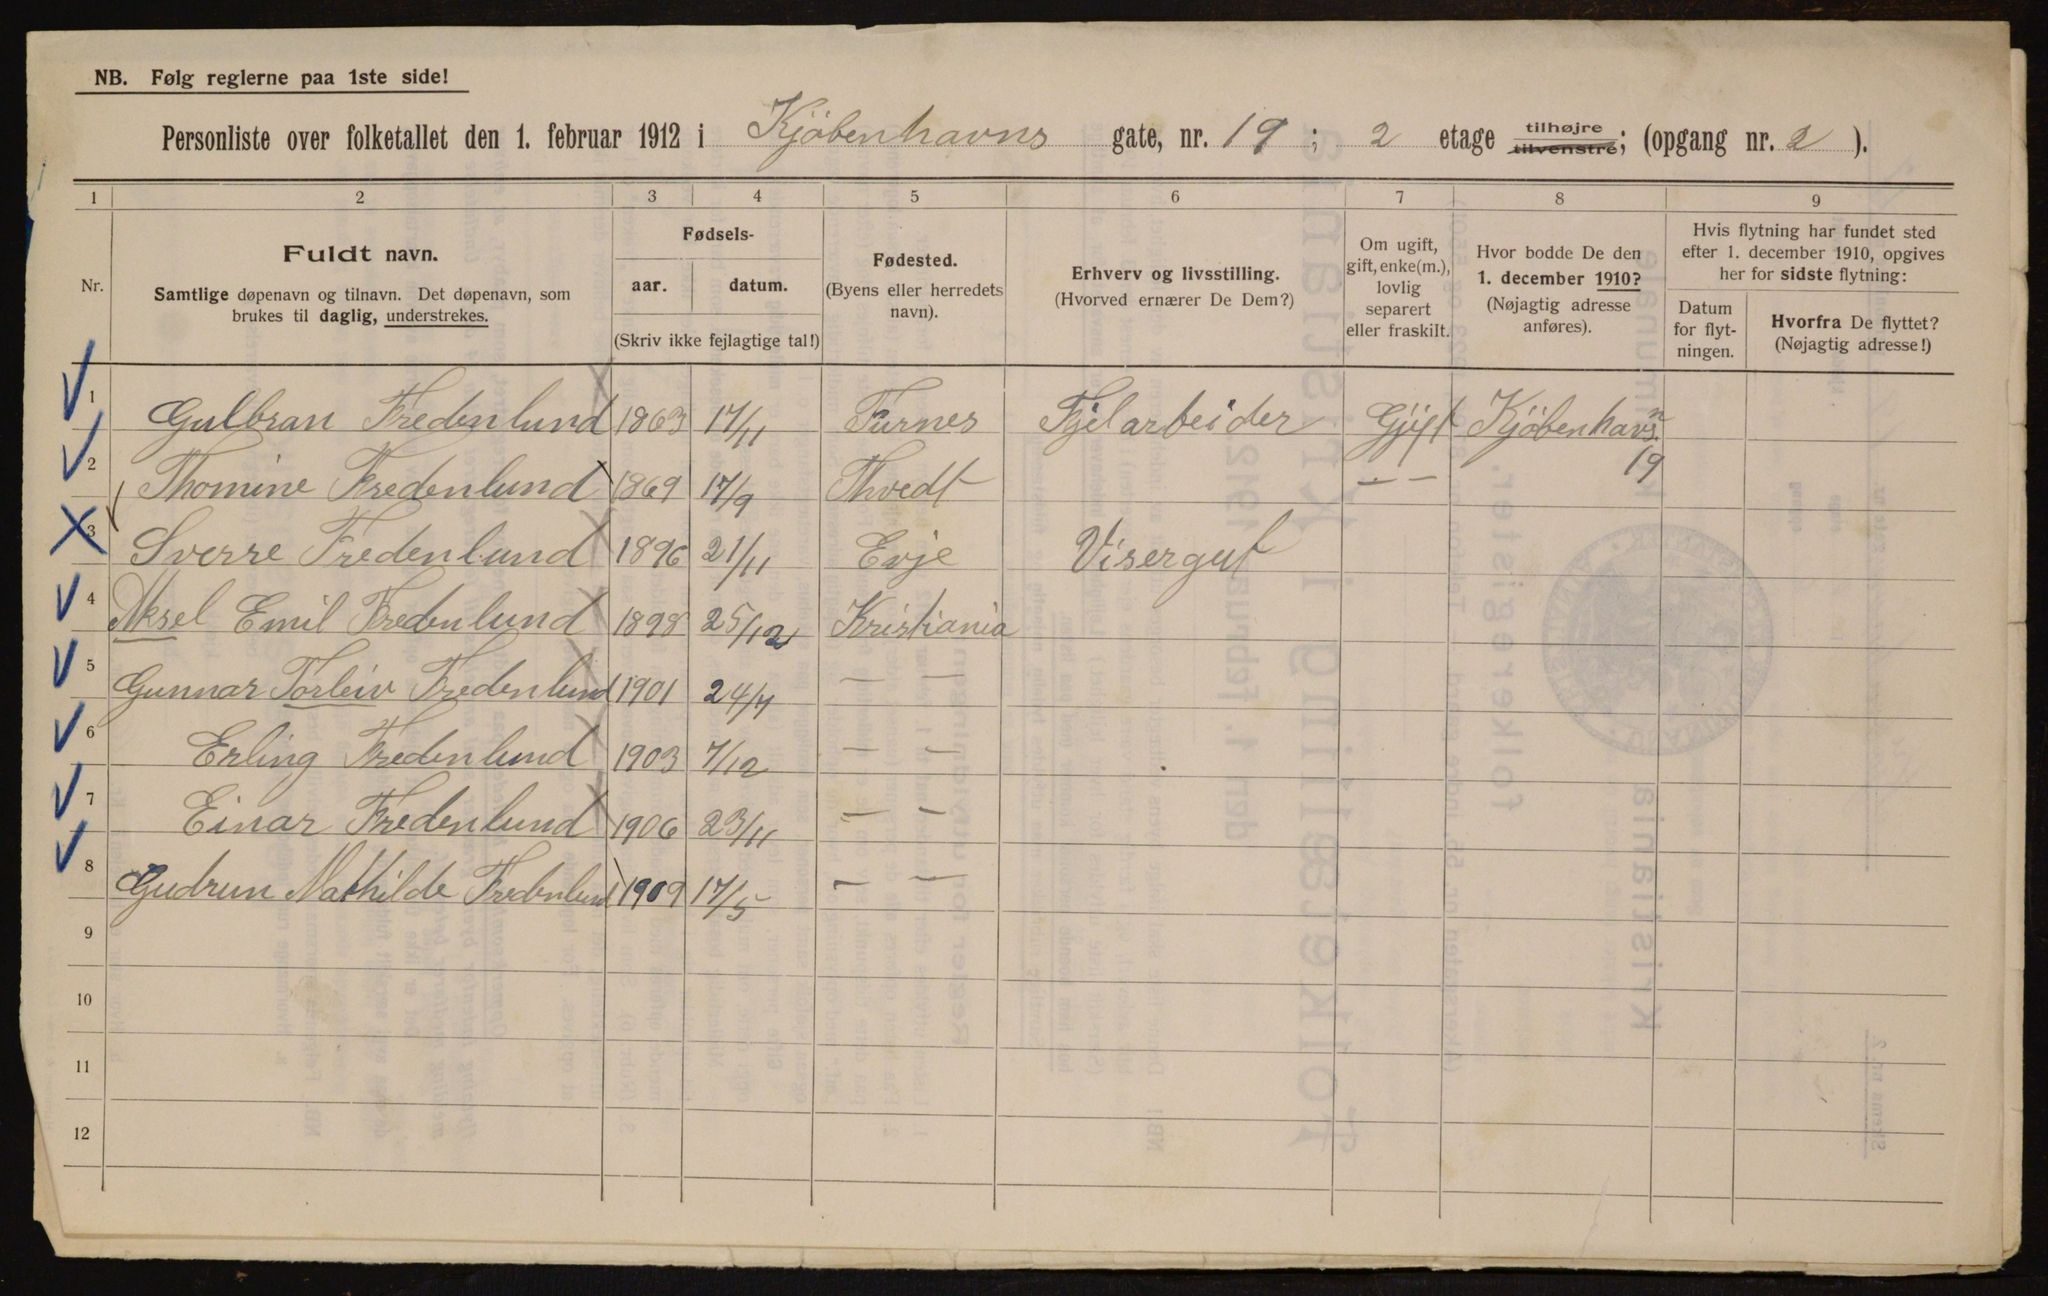 NB. Følg reglerne paa 1ste side!
Personliste over folketallet den 1. februar 1912 i Kjøbenhavns gate, nr. 19 ; 2 etage tilhøjre tilvenstre; (opgang nr. 2 ).
1 2 3 4 5 6 7 8 9
Nr.
Fuldt navn.
Samtlige døpenavn og tilnavn. Det døpenavn, som
brukes til daglig, understrekes.
Fødsels-
aar. datum.
(Skriv ikke fejlagtige tal!)
Fødested.
(Byens eller herredets
navn).
Erhverv og livsstilling.
(Hvorved ernærer De Dem?)
Om ugift,
gift, enke(m.),
lovlig
separert
eller fraskilt.
Hvor bodde De den
1. december 1910?
(Nøjagtig adresse
anføres).
Hvis flytning har fundet sted
efter 1. december 1910, opgives
her for sidste flytning:
Datum
for flyt-
ningen.
Hvorfra De flyttet?
(Nøjagtig adresse!)
1 Gulbran Fredenlund 1863 17/11 Furnes Fjelarbeider Gjift Kjøbenhavns.
19
2 Thomine Fredenlund 1869 17/9 Thvedt — —
3 Sverre Fredenlund 1896 21/11 Evje Visergut
4 Aksel Emil Fredenlund 1898 25/12 Kristiania
5 Gunnar Torleiv Fredenlund 1901 24/4 — —
6 Erling Fredenlund 1903 7/12 — —
7 Einar Fredenlund 1906 23/11 — —
8 Gudrun Mathilde Fredenlund 1909 17/5 — —
9
10
11
12